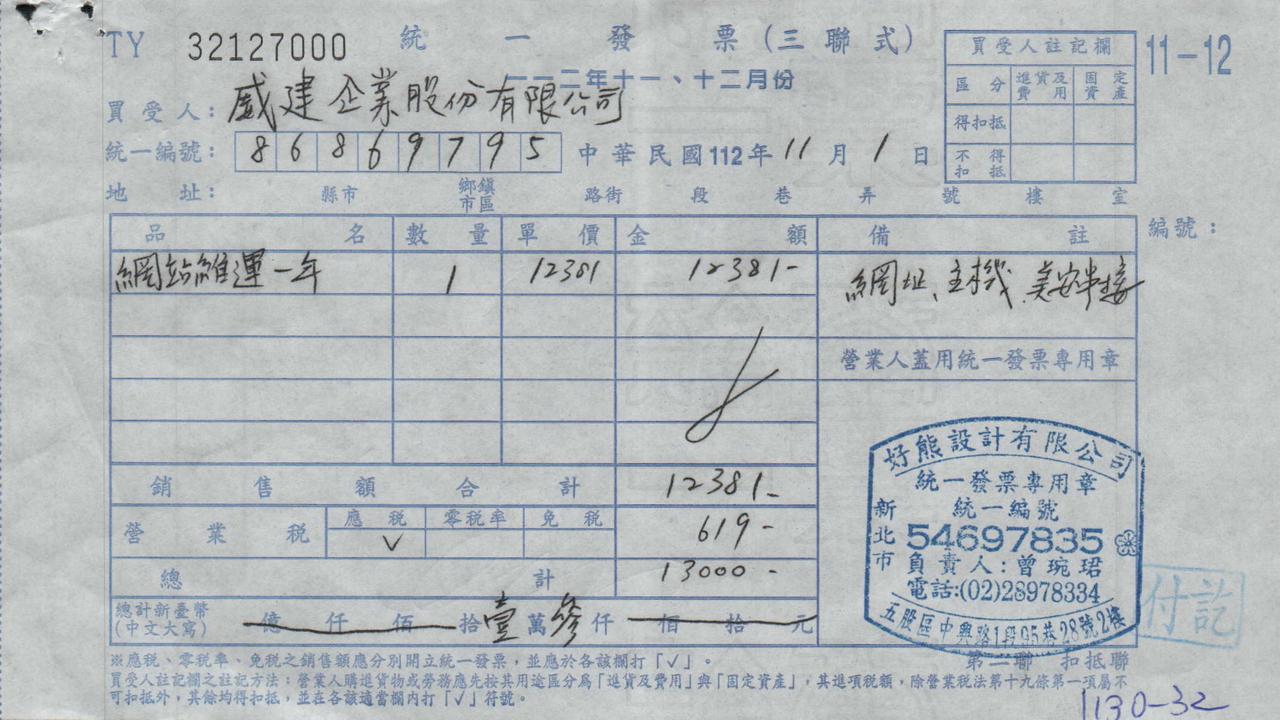 TY 32127000 統一發票(三聯式)
一一二年十一、十二月份
11-12
買受人註記欄
區分 進貨及費用 固定資產
得扣抵
不得扣抵
買受人: 威建企業股份有限公司
統一編號: 86869795 中華民國112年11月1日
地址: 縣市 鄉鎮市區 路街 段 巷 弄 號 樓 室
品名 數量 單價 金額 備註 編號:
網站維運一年 1 12381 12381- 網址、主機、美安串接
營業人蓋用統一發票專用章
銷售額合計 12381-
營業稅 應稅 零稅率 免稅 619-
V
總計 13000-
總計新臺幣(中文大寫) 億 仟 佰 拾 壹 萬 參 仟 佰 拾 元
好熊設計有限公司
統一發票專用章
新北市
統一編號
54697835
負責人:曾琬珺
電話:(02)28978334
五股區中興路1段95巷28號2樓
付訖
※應稅、零稅率、免稅之銷售額應分別開立統一發票,並應於各該欄打「✓」。
第二聯 扣抵聯
買受人註記欄之註記方法:營業人購進貨物或勞務應先按其用途區分為「進貨及費用」與「固定資產」,其進項稅額,除營業稅法第十九條第一項屬不
可扣抵外,其餘均得扣抵,並在各該適當欄內打「✓」符號。
1130-32